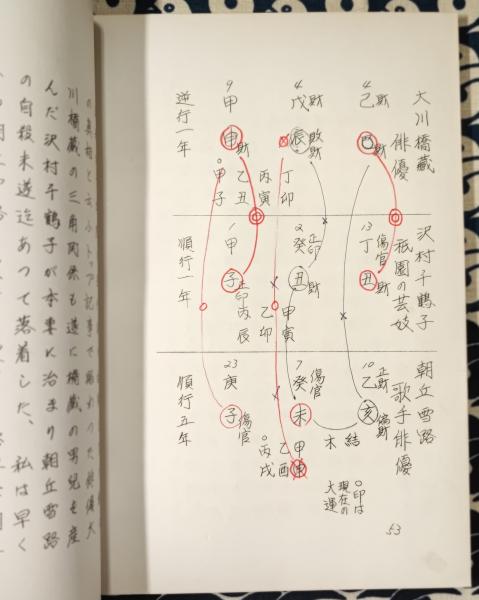 の自殺未遂迄あつて落着した、私は早く
んだ沢村千鶴子が本妻に治まり朝丘雪路
川橋蔵の三角関係も遂に橋蔵の男児を産
大川橋蔵 俳優
4 己 財
巳 財
4 戊 財
辰 敗財
丁卯
丙寅
乙丑
甲子
9 甲
申 財
逆行一年
沢村千鶴子 祇園の芸妓
13 丁 傷官
丑 財
2 癸 正印
丑 財
甲寅
乙卯
丙辰
1 甲
子 正印
順行一年
朝丘雪路 歌手俳優
10 乙 正財
亥 偏財
7 癸 傷官
未
木結
甲申
乙酉
丙戌
23 庚
子 傷官
順行五年
○印は現在の大運
53